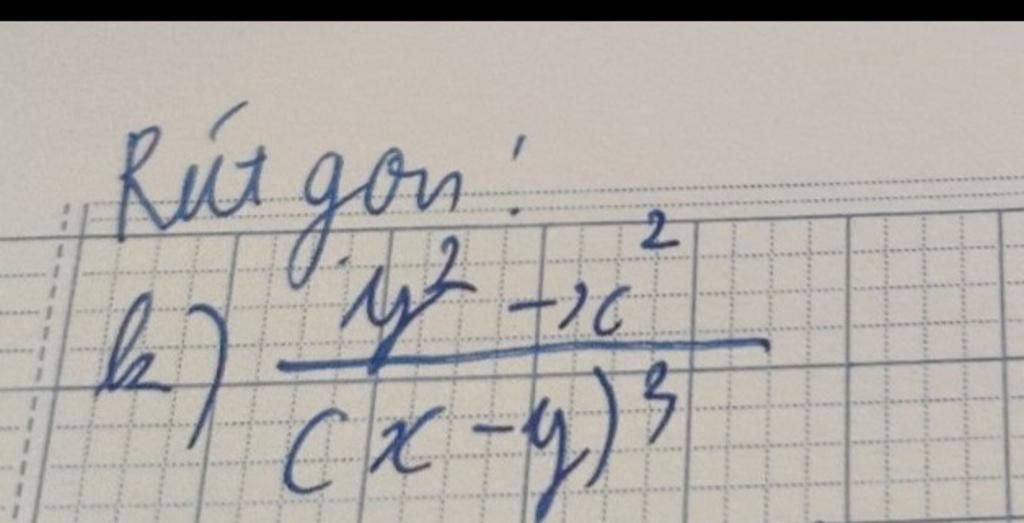 Rút gọn!
k) \frac{y^2 - x^2}{(x - y)^3}